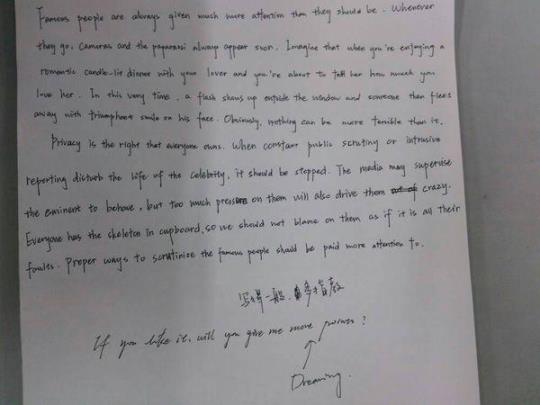 Famous people are always given much more attention than they should be. Whenever
they go, cameras and the paparassi always appear soon. Imagine that when you're enjoying a
romantic candle-lit dinner with your lover and you're about to tell her how much you
love her. In this very time, a flash shows up outside the window and someone then flees
away with triumphant smile on his face. Obviously, nothing can be more terrible than it.
Privacy is the right that everyone owns. When constant public scrutiny or intrusive
reporting disturb the life of the celebrity, it should be stopped. The media may supervise
the eminent to behave, but too much pressure on them will also drive them crazy.
Everyone has the skeleton in cupboard, so we should not blame on them as if it is all their
foules. Proper ways to scrutinize the famous people should be paid more attention to.
写得一般，多多指教
If you like it, will you give me more powers?
Dreaming.